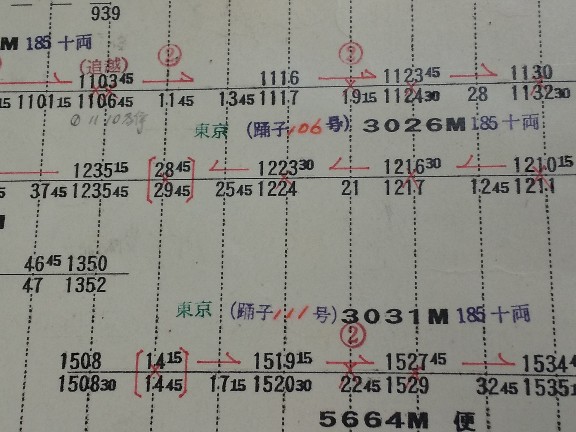 939
M 185 十両
② ②
(追越)
1103 45 1116 1123 45 1130
15 1101 15 1106 45 11 45 13 45 1117 19 15 1124 30 28 1132 30
東京 (踊子106号) 3026M 185 十両
1235 15 [28 45] 1223 30 1216 30 1210 15
37 45 1235 45 [29 45] 25 45 1224 21 1217 12 45 1211
46 45 1350
47 1352
東京 (踊子111号) 3031M 185 十両
②
1508 [14 15] 1519 15 1527 45 1534
1508 30 [14 45] 17 15 1520 30 22 45 1529 32 45 1535
5664M 便